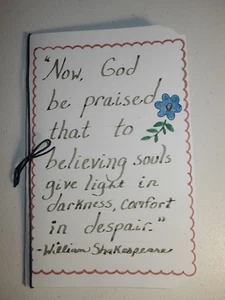 "Now, God
be praised
that to
believing souls
give light in
darkness, comfort
in despair."
-William Shakespeare